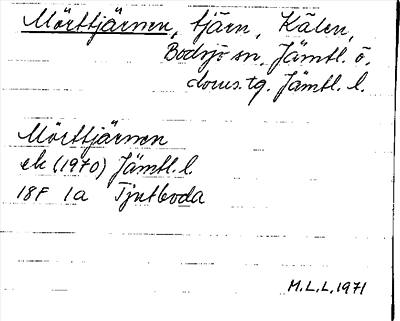 Mörttjärnen, tjärn, Kälen,
Bodsjö sn. Jämtl. ö.
doms.tg. Jämtl. l.
Mörttjärnen
ek (1970) Jämtl. l.
18F 1a Tjutboda
M.L.L. 1971